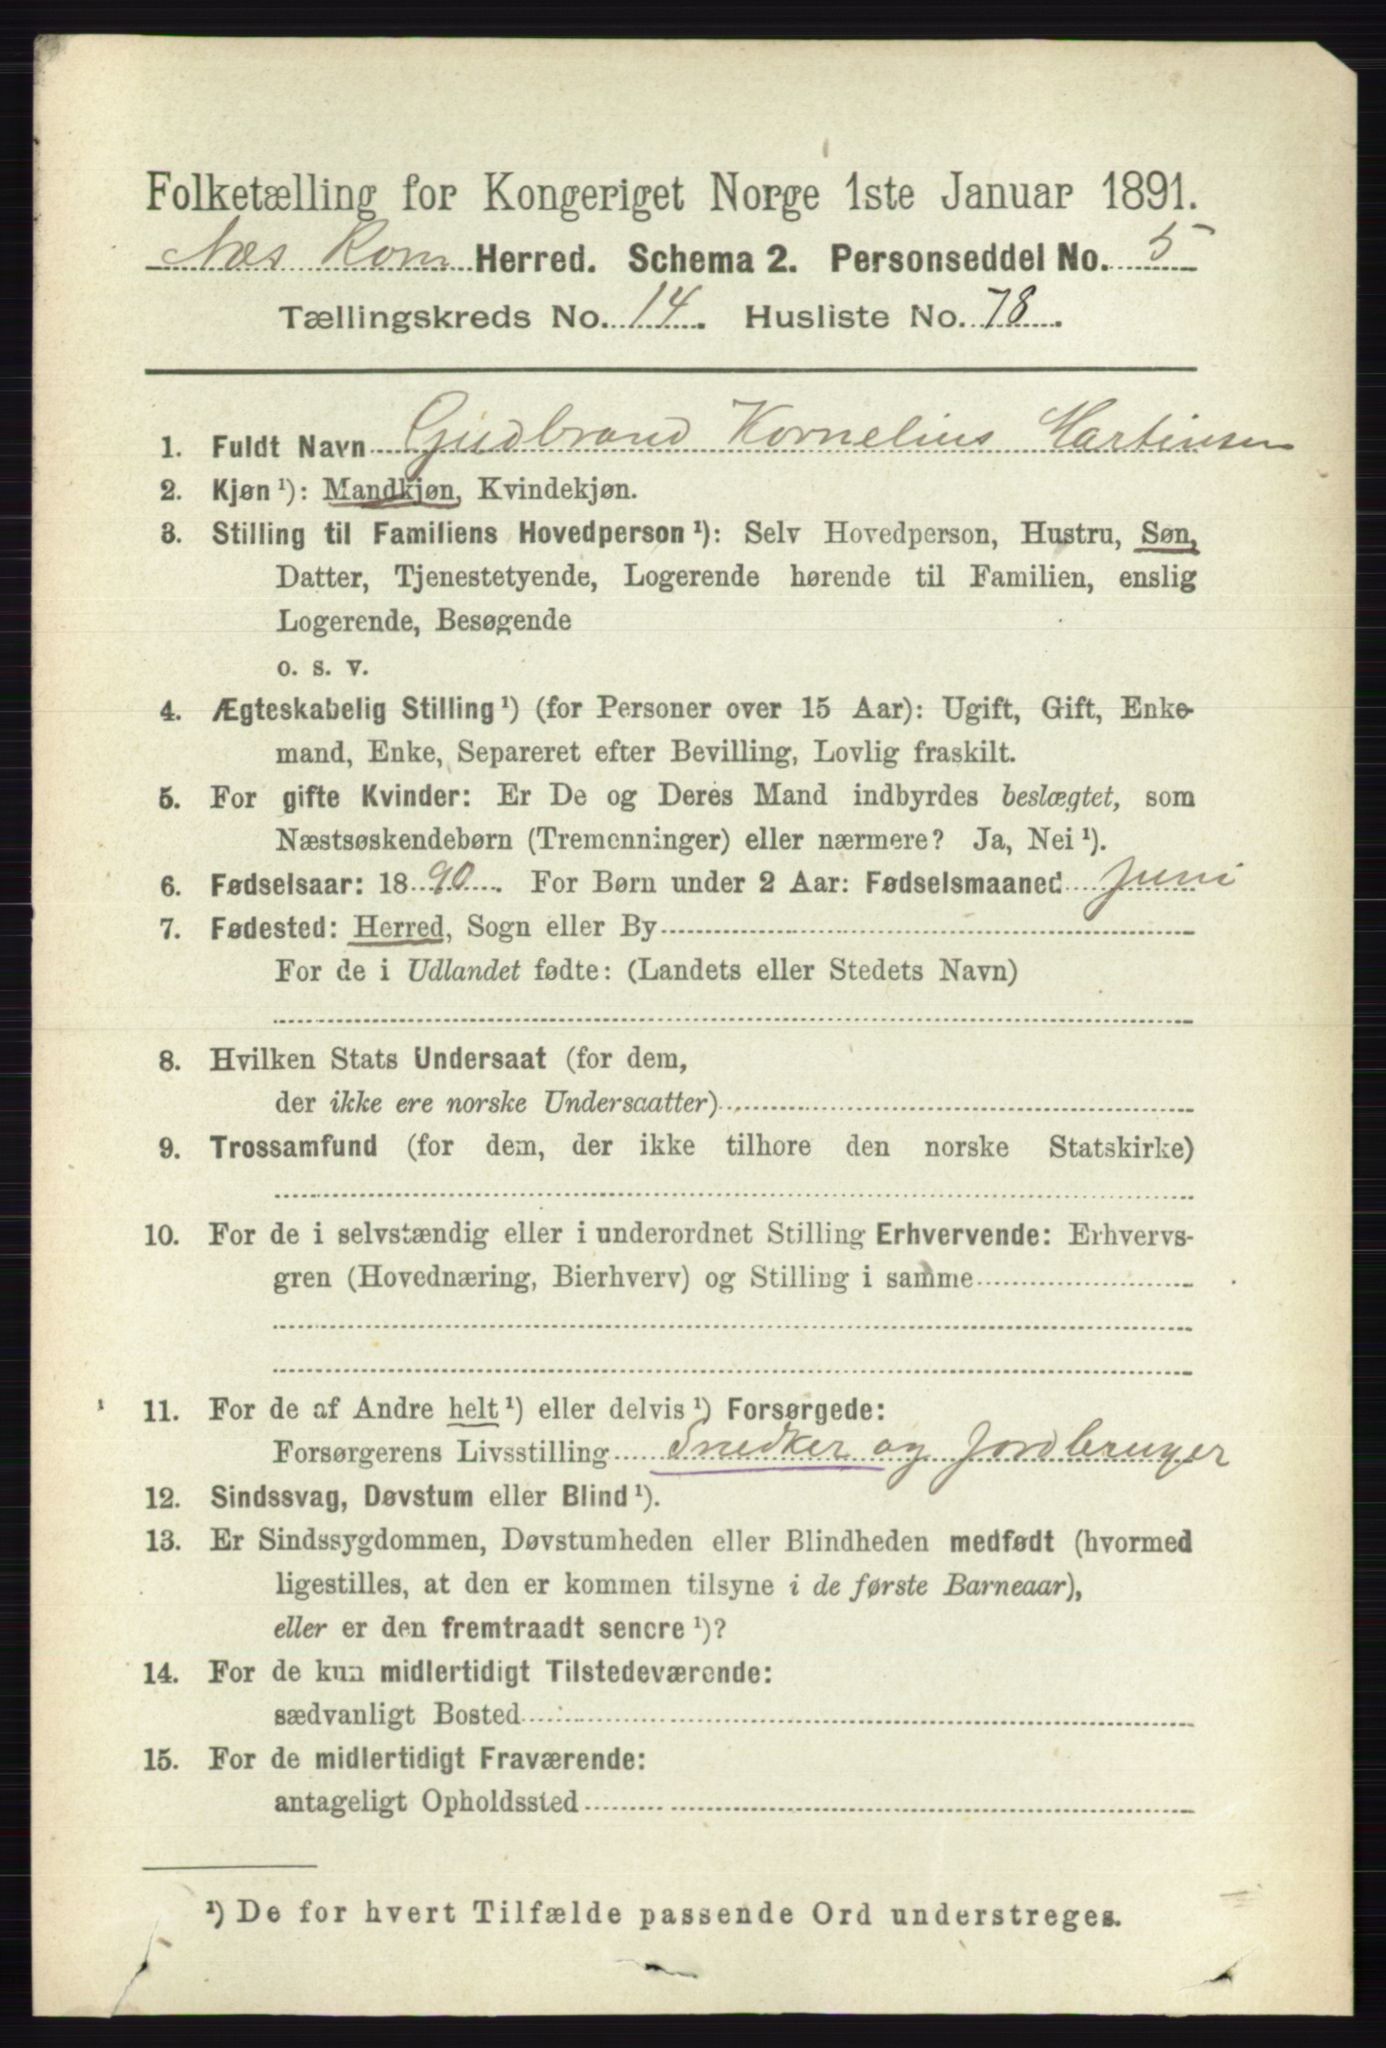 Folketælling for Kongeriget Norge 1ste Januar 1891.
Næs Rom Herred. Schema 2. Personseddel No. 5
Tællingskreds No. 14. Husliste No. 78.
1. Fuldt Navn Gudbrand Kornelius Martinsen
2. Kjøn ¹): Mandkjøn, Kvindekjøn.
3. Stilling til Familiens Hovedperson ¹): Selv Hovedperson, Hustru, Søn,
Datter, Tjenestetyende, Logerende hørende til Familien, enslig
Logerende, Besøgende
o. s. v.
4. Ægteskabelig Stilling ¹) (for Personer over 15 Aar): Ugift, Gift, Enke-
mand, Enke, Separeret efter Bevilling, Lovlig fraskilt.
5. For gifte Kvinder: Er De og Deres Mand indbyrdes beslægtet, som
Næstsøskendebørn (Tremenninger) eller nærmere? Ja, Nei ¹).
6. Fødselsaar: 1890. For Børn under 2 Aar: Fødselsmaaned Juni
7. Fødested: Herred, Sogn eller By
For de i Udlandet fødte: (Landets eller Stedets Navn)
8. Hvilken Stats Undersaat (for dem,
der ikke ere norske Undersaatter)
9. Trossamfund (for dem, der ikke tilhøre den norske Statskirke)
10. For de i selvstændig eller i underordnet Stilling Erhvervende: Erhvervs-
gren (Hovednæring, Bierhverv) og Stilling i samme
11. For de af Andre helt ¹) eller delvis ¹) Forsørgede:
Forsørgerens Livsstilling Snedker og Jordbruger
12. Sindssvag, Døvstum eller Blind ¹).
13. Er Sindssygdommen, Døvstumheden eller Blindheden medfødt (hvormed
ligestilles, at den er kommen tilsyne i de første Barneaar),
eller er den fremtraadt senere ¹)?
14. For de kun midlertidigt Tilstedeværende:
sædvanligt Bosted
15. For de midlertidigt Fraværende:
antageligt Opholdssted
¹) De for hvert Tilfælde passende Ord understreges.